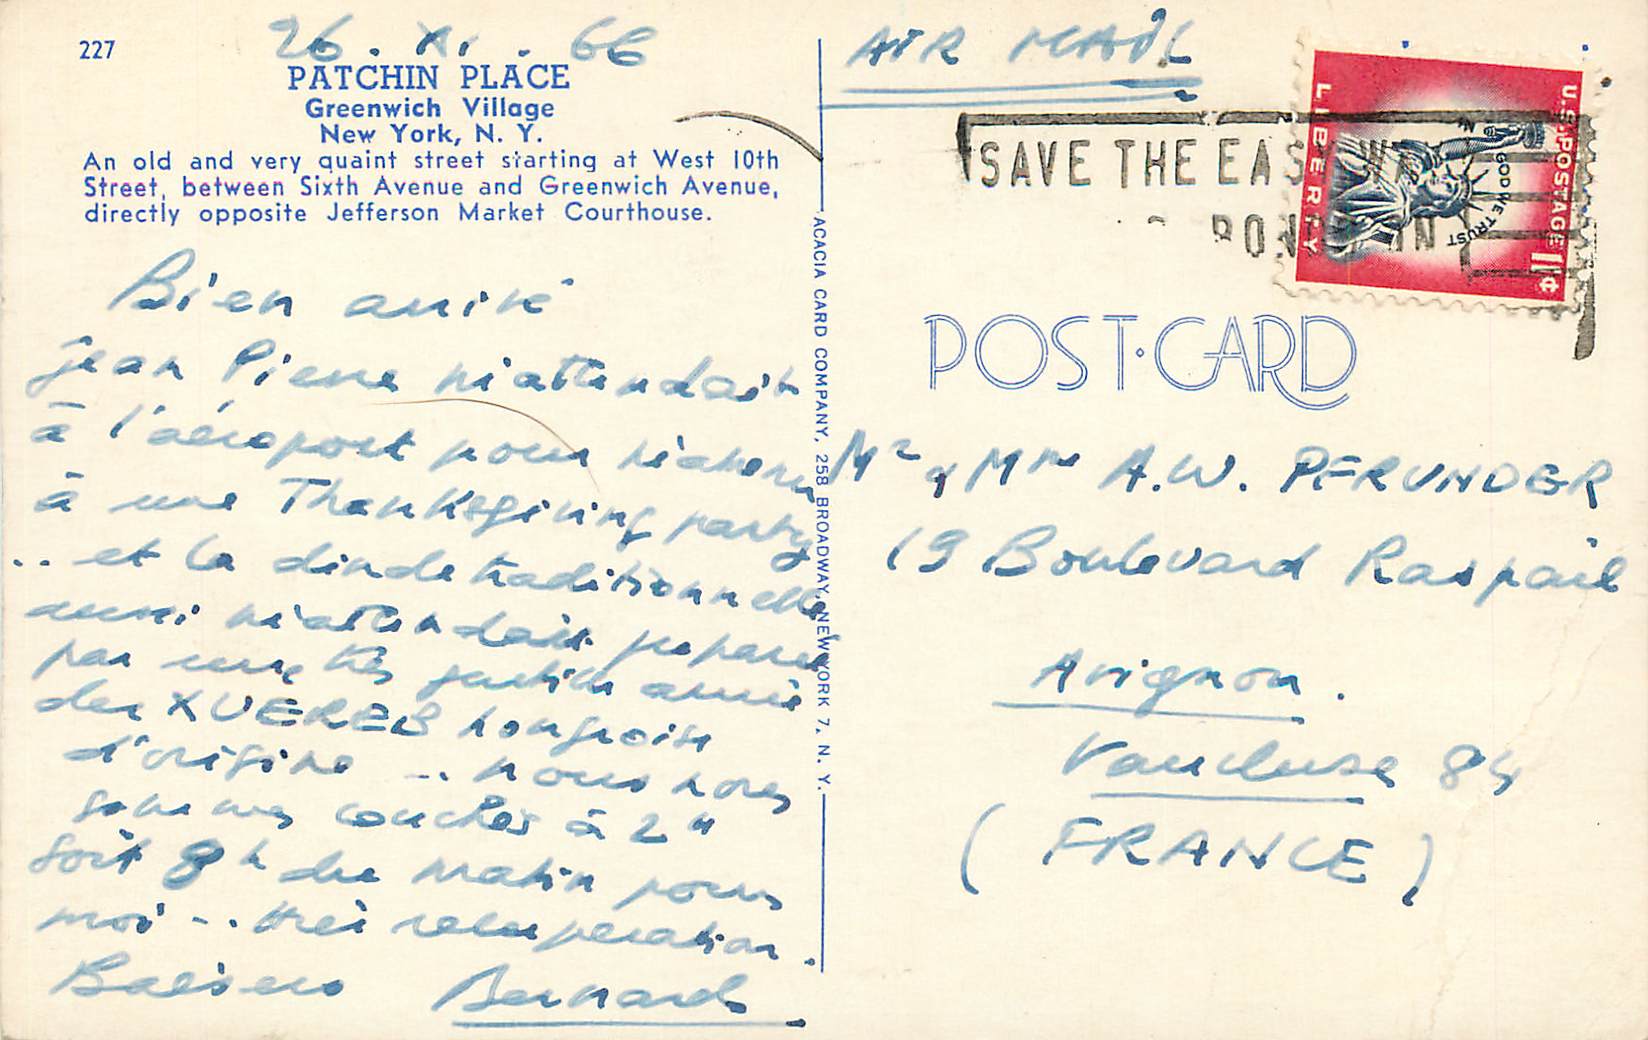 227
26. XI. 66
PATCHIN PLACE
Greenwich Village
New York, N. Y.
An old and very quaint street starting at West 10th
Street, between Sixth Avenue and Greenwich Avenue,
directly opposite Jefferson Market Courthouse.
Bien arrivé
Jean Pierre m'attendait
à l'aéroport pour m'amener
à une Thanksgiving party
.. et la dinde traditionnelle
aussi m'attendait préparée
par une très gentille amie
des XUEREB hongroise
d'origine ... nous nous
sommes couchés à 2h
soit 8h du matin pour
moi ... très
Baisers Bernard
ACACIA CARD COMPANY, 258 BROADWAY, NEW YORK 7, N. Y.
AIR MAIL
SAVE THE EAS
U.S. POSTAGE 11¢
LIBERTY
IN GOD WE TRUST
POST·CARD
Mr & Mme A.W. PERUNDER
19 Boulevard Raspail
Avignon.
Vaucluse 84
(FRANCE)